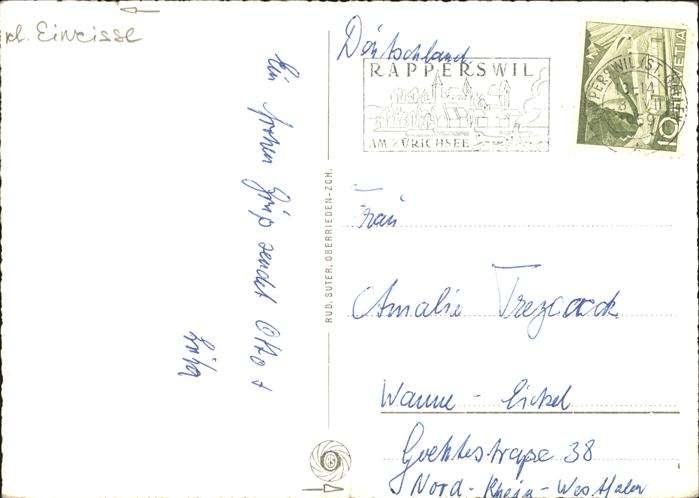 kl. Einrisse
Ein frohen Gruß sendet Otto +
Deutschland
RAPPERSWIL
AM ZÜRICHSEE
HELVETIA
10
RUD. SUTER, OBERRIEDEN-ZCH.
Frau
Amalie Trezcack
Wanne - Eickel
Goethestraße 38
Nord-Rhein-Westfalen